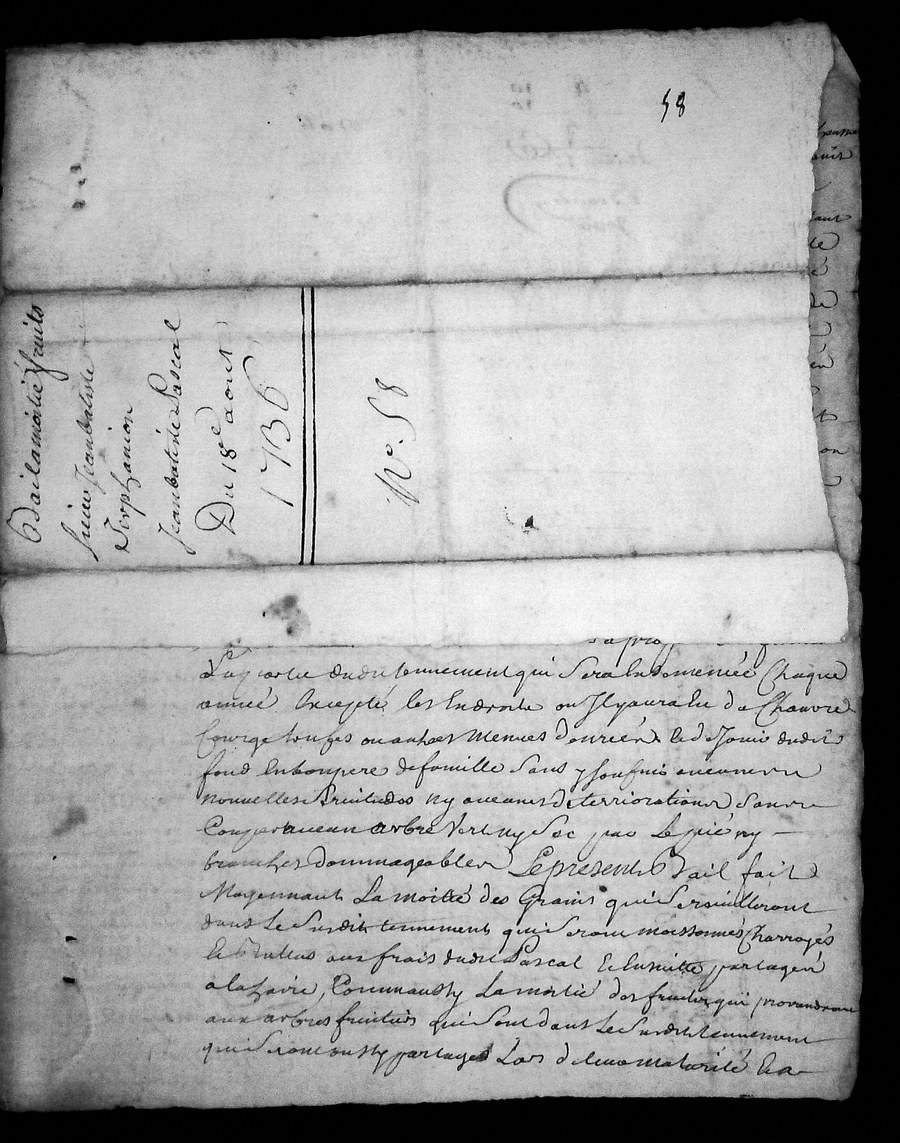 58
Bail amoitié fruits
Sieur Jeanbatiste
Serphanion
Jeanbatiste Pascal
Du 18e aout
1736
No. 58
La partie dudit tennement qui sera Ensemencée Chaque
année Excepté les Endroits ou Il y aura de Chanvre
Courge ou autres Menues danrées Et de Jouir dudit
fond En bon pere de famille sans y soufrir aucunes
nouvelles servitudes ny aucunes deteriorations sans
Couper aucun arbre vert ny sec par Le pié ny
branches dommageables Le present Bail fait
Moyennant La moitié des Grains qui se
dans Le susdit tennement qui seront moissonnés Charroyés
Et aux frais dudit Pascal Et Ensuitte partagés
a Laire, Comm'aussy La moitié des fruits qui proviendront
aux arbres fruitiers qui sont dans Le susdit tennement
qui seront aussy partagés Lors de leur maturité Et a